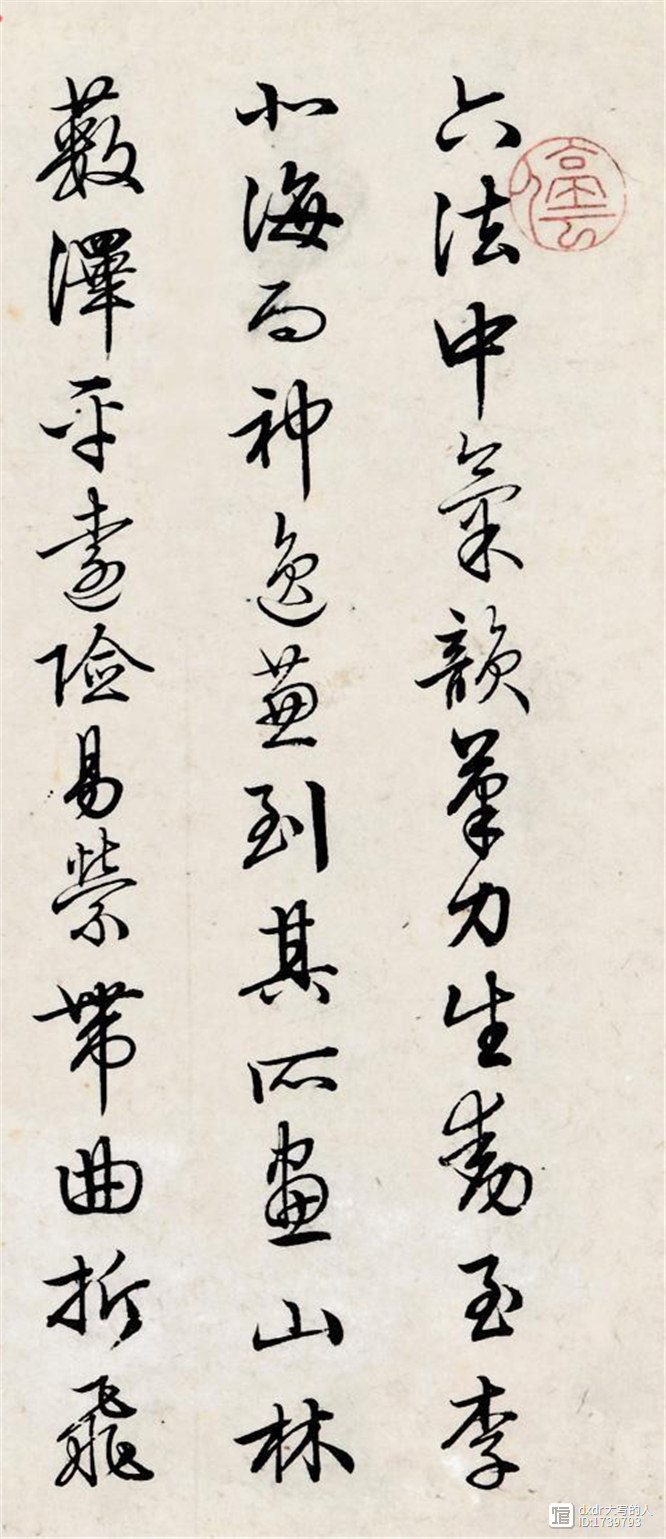 六法中氣韻筆力生動至李
北海而神逸兼到其所畫山林
藪澤平遠險易縈帶曲折飛
停雲
dxdr大写的人
ID:1739793